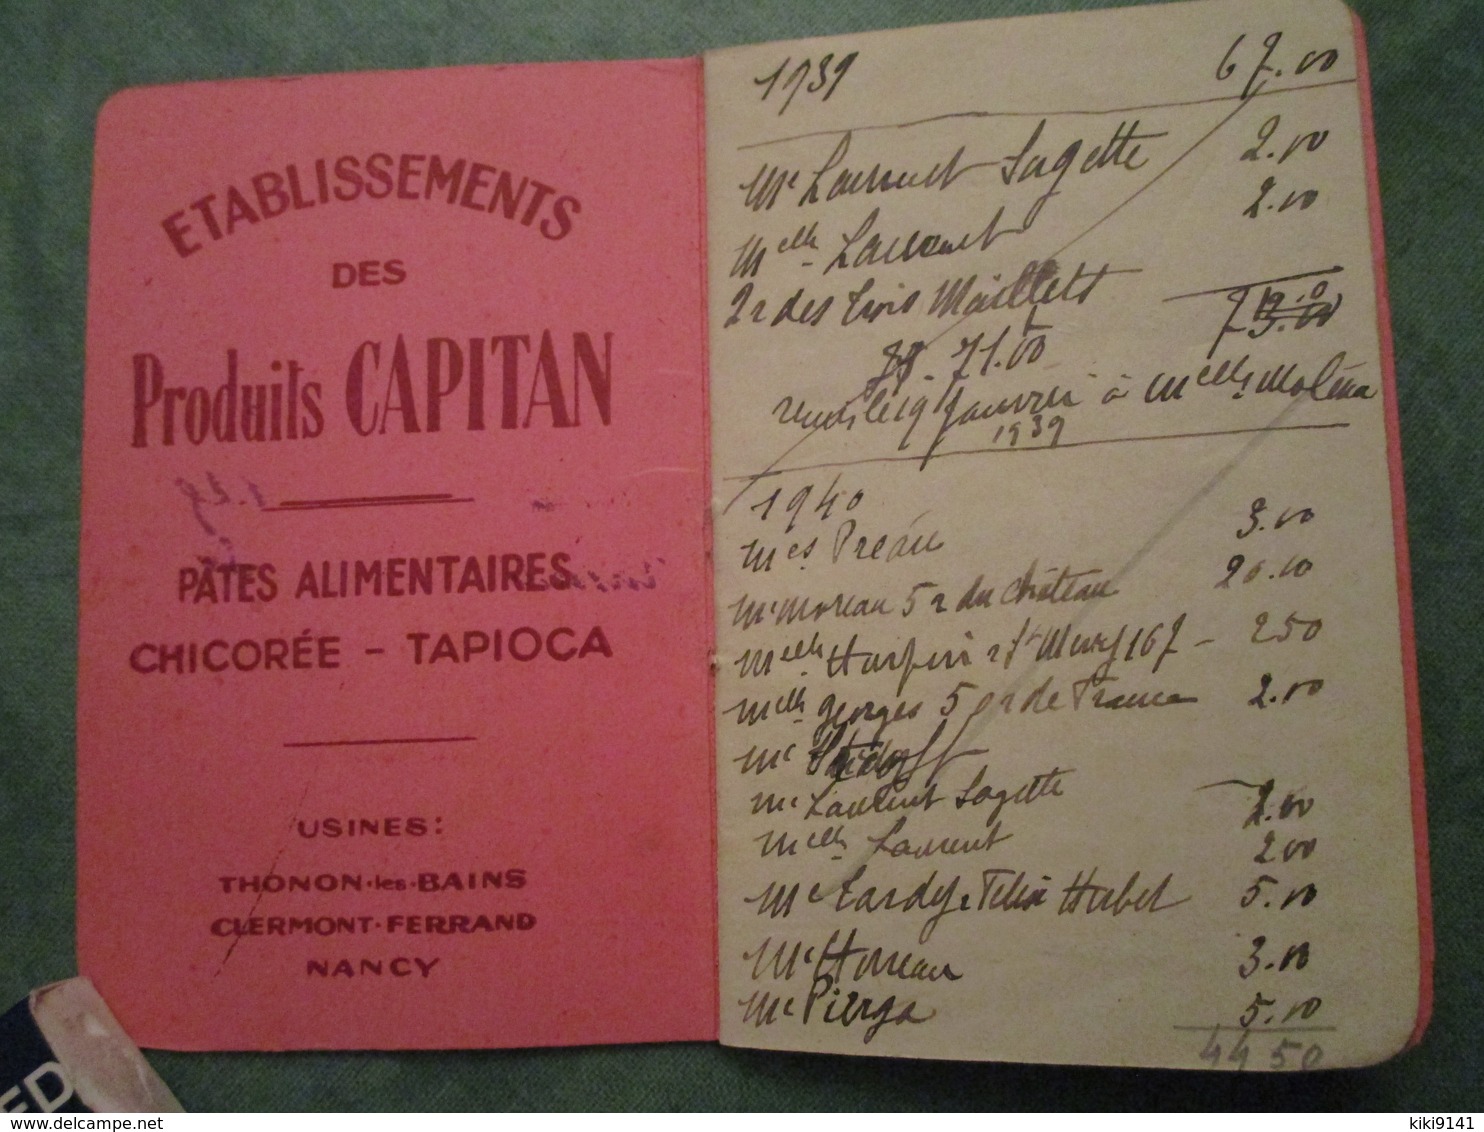 ETABLISSEMENTS
DES
Produits CAPITAN
PÂTES ALIMENTAIRES
CHICORÉE - TAPIOCA
USINES:
THONON-les-BAINS
CLERMONT-FERRAND
NANCY
1939 67.00
Me Laurent Sagette 2.00
Melle Laurent 2.00
2 r des trois Maillets
71.00
le 19 Janvier à Melle Molina
1939
1940
Mes Préau 3.00
Me Moreau 5 r du Château 20.00
Melle Harpin r St 167 - 250
Melle georges 5 de France 2.00
Me
Me Laurent Sagette 2.00
Melle Laurent 200
Me Tardy r Félix Herbet 5.00
Me Moreau 3.00
Me Pierga 5.00
44 50
ED
kiki9141